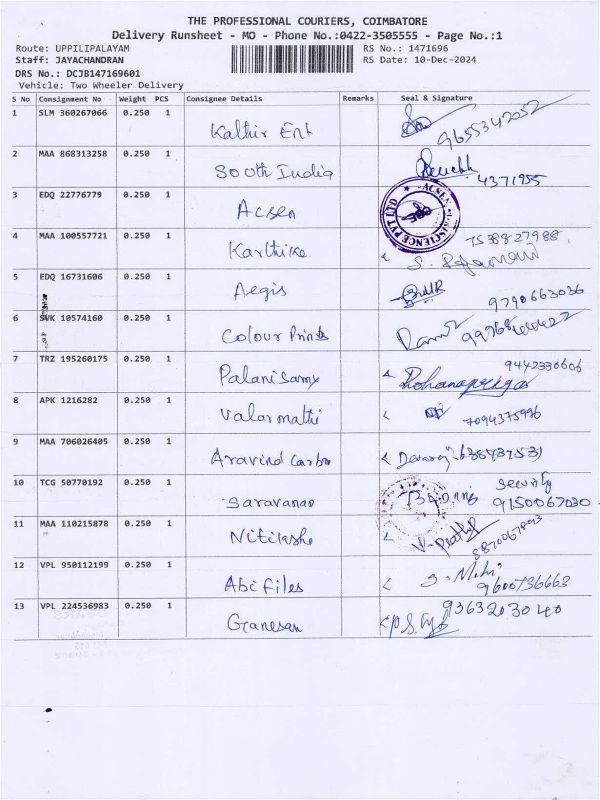 THE PROFESSIONAL COURIERS, COIMBATORE
Delivery Runsheet - MO - Phone No.:0422-3505555 - Page No.:1
Route: UPPILIPALAYAM RS No.: 1471696
Staff: JAYACHANDRAN RS Date: 10-Dec-2024
DRS No.: DCJB147169601
Vehicle: Two Wheeler Delivery
S No Consignment No Weight PCS Consignee Details Remarks Seal & Signature
1 SLM 360267066 0.250 1 Kathir Ent 9655342052
2 MAA 868313258 0.250 1 South India 4371955
3 EDQ 22776779 0.250 1 Acsen
4 MAA 100557721 0.250 1 Karthike 7538827988
5 EDQ 16731606 0.250 1 Aegis 9790663036
6 SVK 10574160 0.250 1 Colour Prints
7 TRZ 195260175 0.250 1 Palanisamy 9442330606
8 APK 1216282 0.250 1 Valarmathi 7094375996
9 MAA 706026405 0.250 1 Aravind Carbon
10 TCG 50770192 0.250 1 Saravanan Security 9150067030
11 MAA 110215878 0.250 1 Nitilesho 8870067893
12 VPL 950112199 0.250 1 Abi files 9600736663
13 VPL 224536983 0.250 1 Ganesan 9363203040